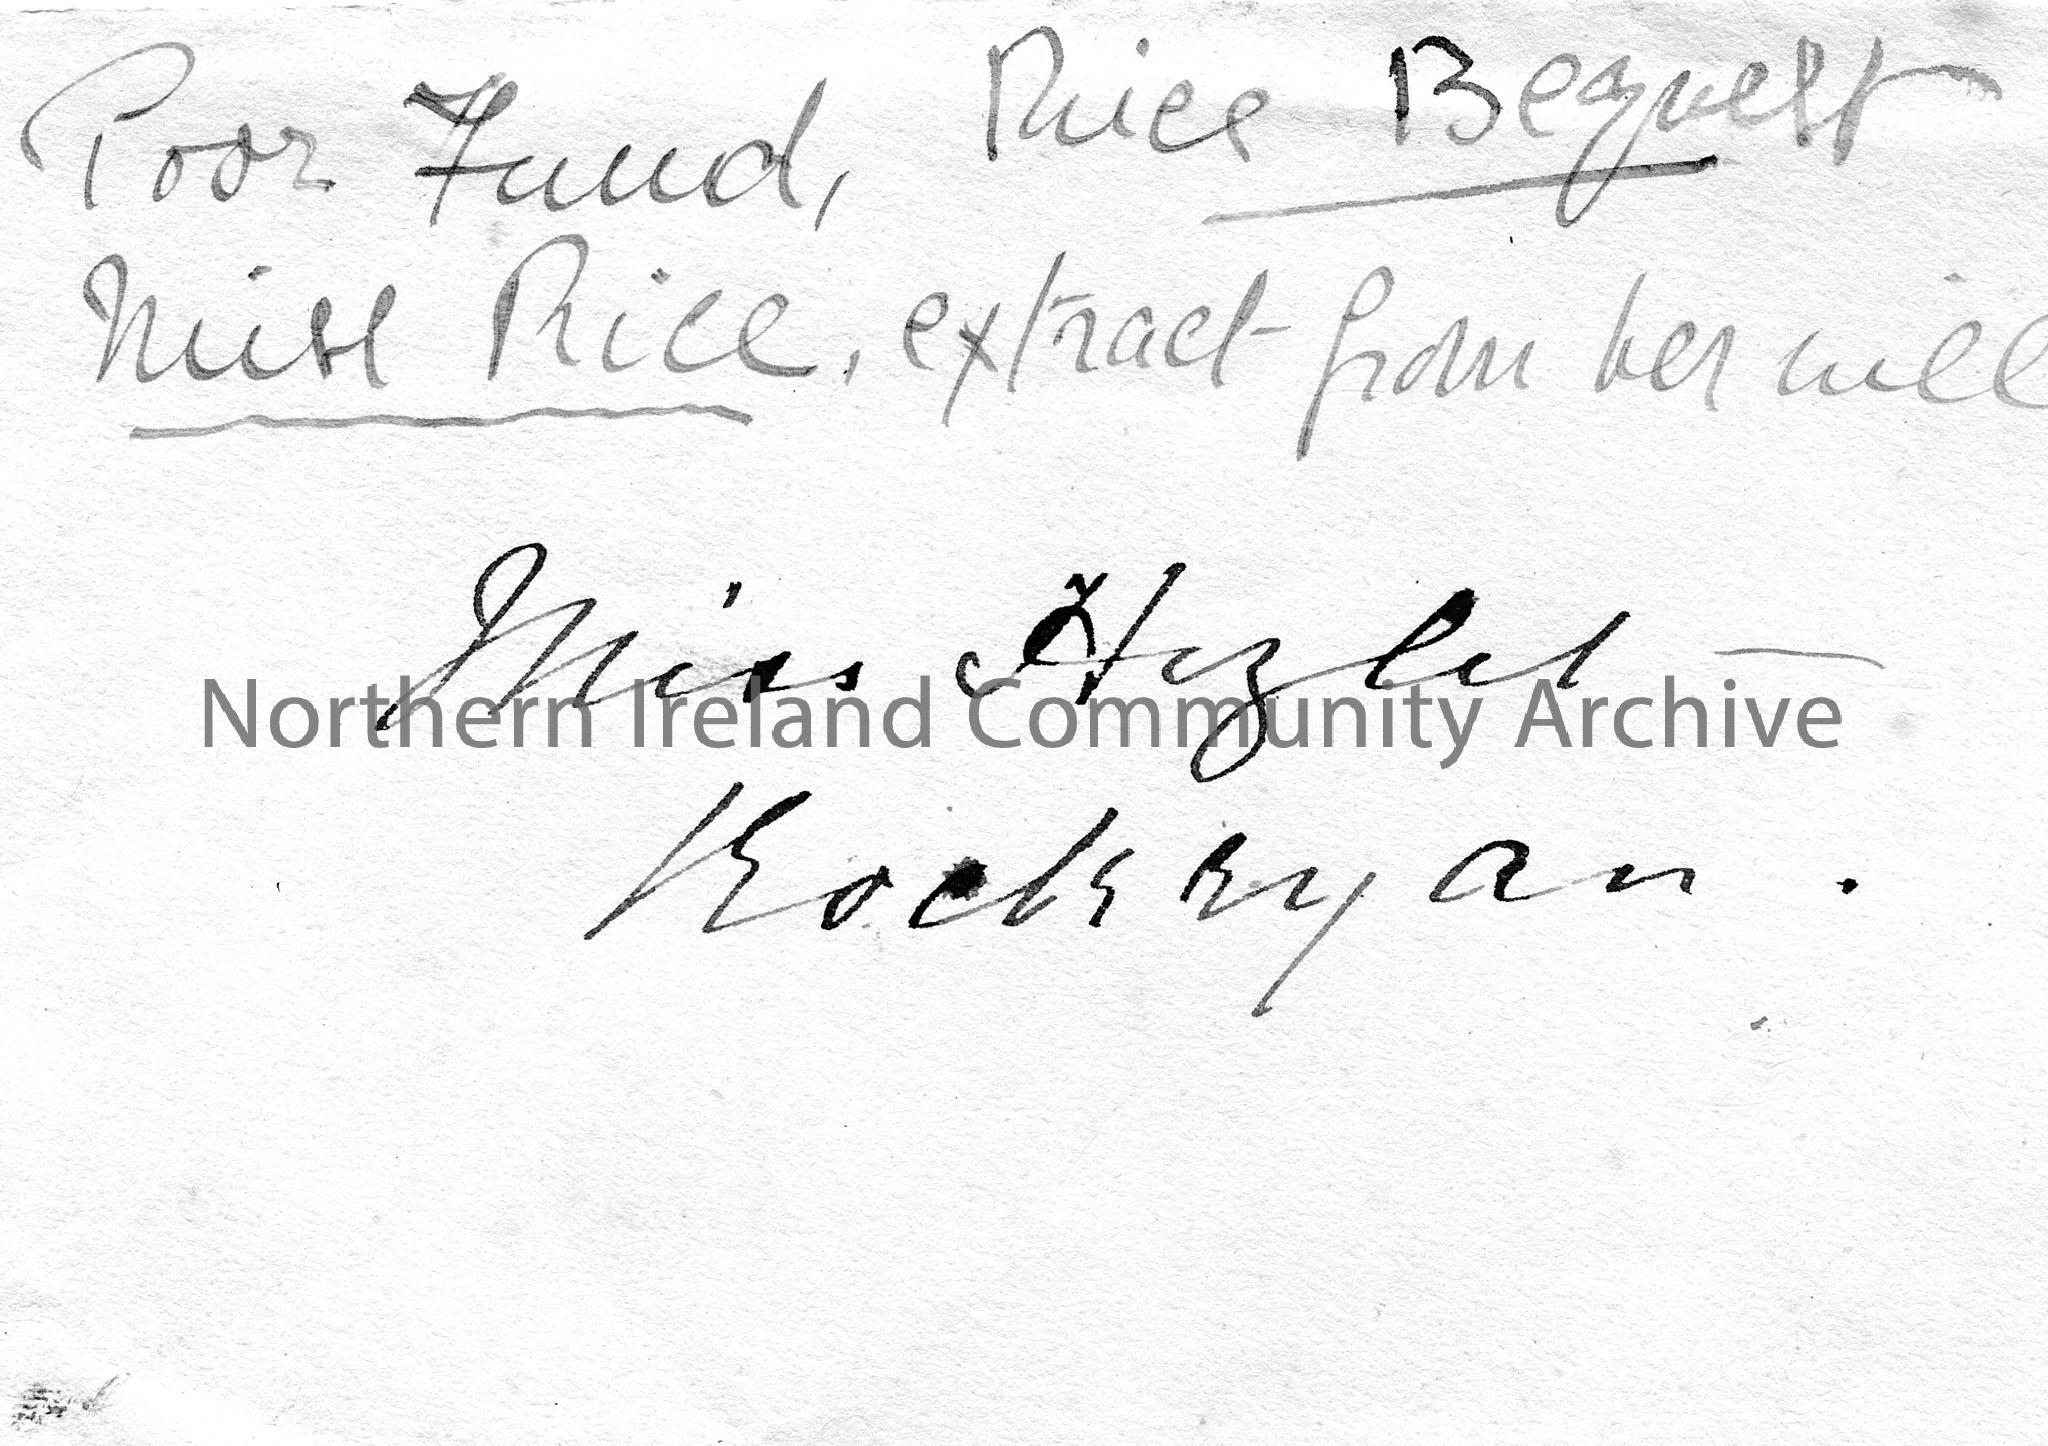 Poor Fund, Rice Bequest
Miss Rice, extract from her will
Miss Hezlet —
Northern Ireland Community Archive
Rockryan.